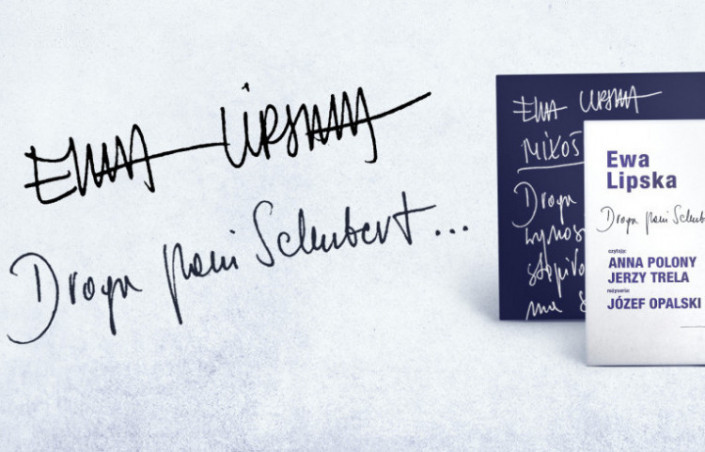 EWA LIPSKA
Droga pani Schubert...
EWA LIPSKA
MIŁOŚ
Droga
ma
Ewa
Lipska
Droga pani Schub
czytają
ANNA POLONY
JERZY TRELA
reżyseria
JÓZEF OPALSKI